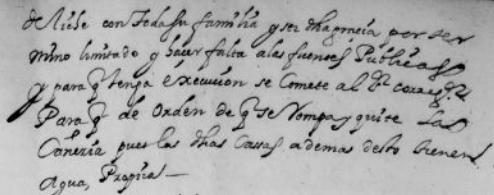 de Riche con toda su familia y sei dha grацia por ser
mino limitado y hacer falta a las fuentes Publicas
y para q̃ tenga execucion se Comete al Sr corregr
Para q̃ de Orden de q̃ se Rompa y quite las
Cañeria pues las dhas Cassas ademas desto tienen
Agua, Propria